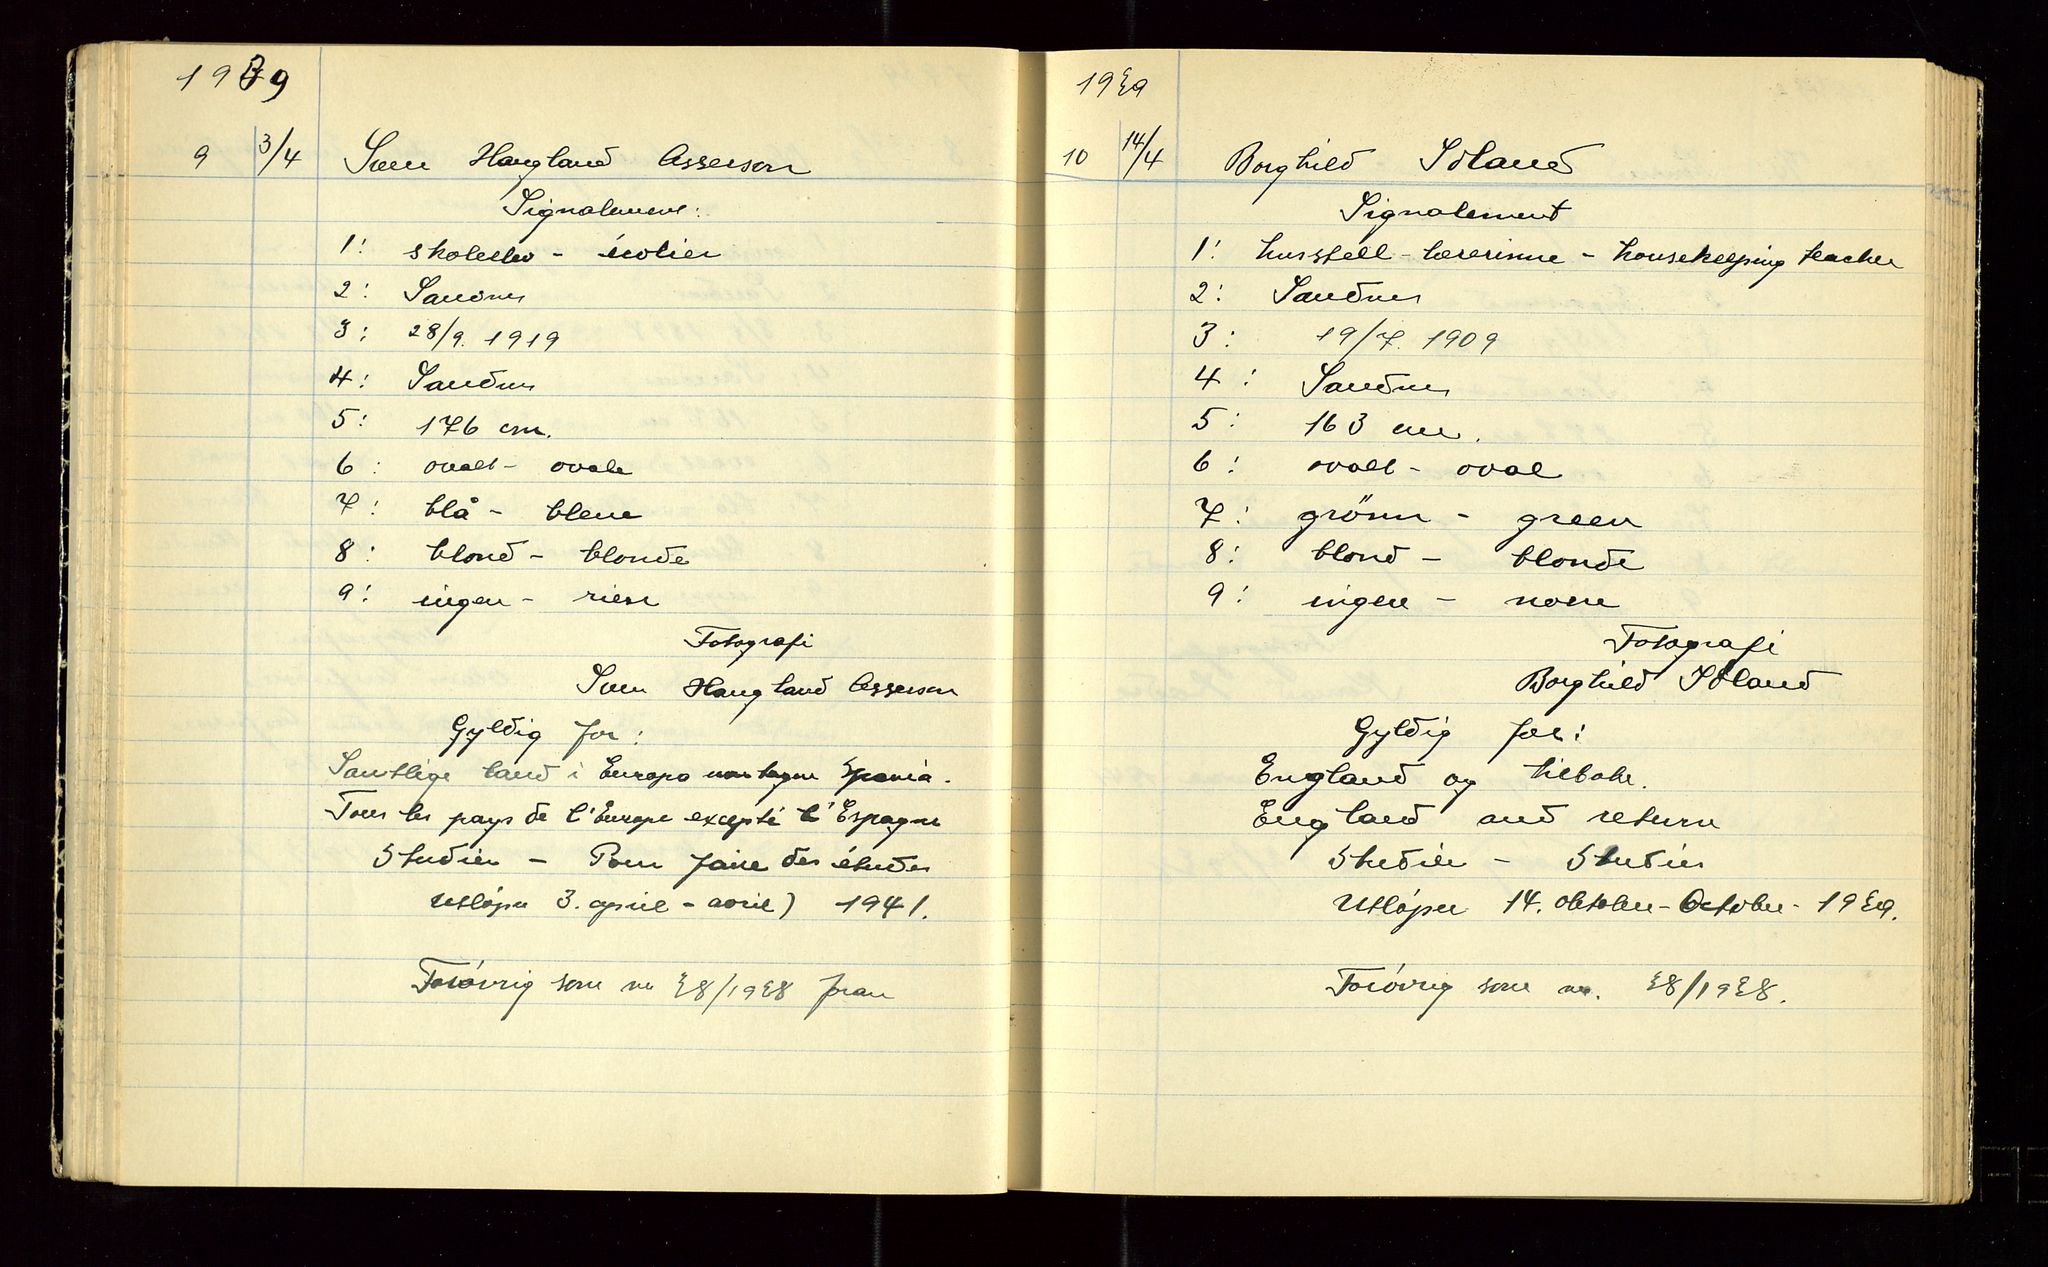 1939
9 3/4 Sven Haugland Asserson
Signalement:
1: skoleelev - écolier
2: Sandnes
3: 28/9. 1919
4: Sandnes
5: 176 cm.
6: ovalt - ovale
7: blå - bleue
8: blond - blonde
9: ingen - rien
Fotografi
Sven Haugland Asserson
Gyldig for:
Samtlige land i Europa unntagen Spania.
Tous les pays de l'Europe excepté l'Espagne
Studier - Pour faire des études
Utløper 3. april - avril) 1941.
Forøvrig som nr 38/1938 foran
1939
10 14/4 Borghild Idland
Signalement
1: husstell - lærerinne - housekeeping teacher
2: Sandnes
3: 19/7. 1909
4: Sandnes
5: 163 cm.
6: ovalt - oval
7: grönn - green
8: blond - blonde
9: ingen - none
Fotografi
Borghild Idland
Gyldig for:
England og tilbake.
England and return
Studier - Studies
Utløper 14. oktober - October - 1939.
Forøvrig som nr. 38/1938.